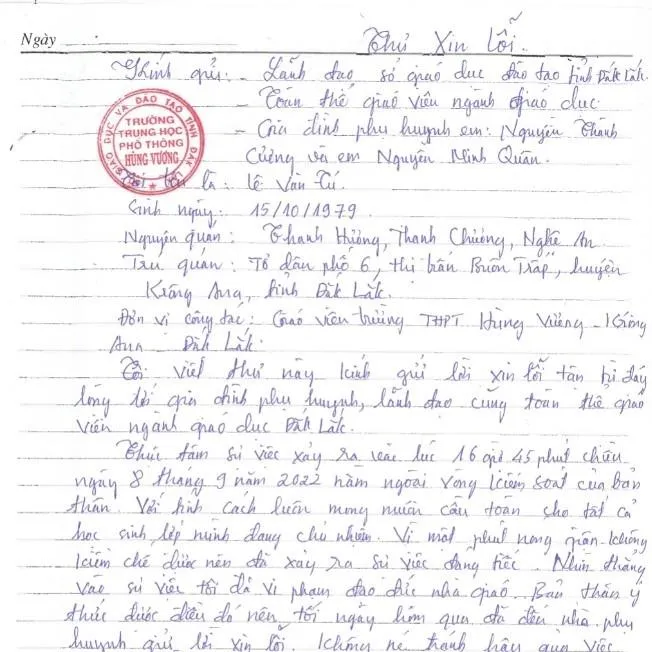 Ngày
Thư Xin lỗi.
Kính gửi: - Lãnh đạo sở giáo dục đào tạo tỉnh Đăk Lăk.
- Toàn thể giáo viên ngành giáo dục.
- Gia đình phụ huynh em: Nguyễn Thanh
Cường và em Nguyễn Minh Quân.
SỞ GIÁO DỤC VÀ ĐÀO TẠO TỈNH ĐẮK LẮK
TRƯỜNG
TRUNG HỌC
PHỔ THÔNG
HÙNG VƯƠNG
Tôi tên là: Lê Văn Tú.
Sinh ngày: 15/10/1979.
Nguyên quán: Thanh Hưởng, Thanh Chương, Nghệ An
Trú quán: Tổ dân phố 6, thị trấn Buôn Trấp, huyện
Krông Ana, tỉnh Đăk Lăk.
Đơn vị công tác: Giáo viên trường THPT Hùng Vương - Krông
Ana - Đăk Lăk.
Tôi viết thư này kính gửi lời xin lỗi tận từ đáy
lòng tới gia đình phụ huynh, lãnh đạo cùng toàn thể giáo
viên ngành giáo dục Đăk Lăk.
sự việc xảy ra vào lúc 16 giờ 45 phút chiều
ngày 8 tháng 9 năm 2022 nằm ngoài vòng kiểm soát của bản
thân. Với tính cách luôn mong muốn cầu toàn cho tất cả
học sinh lớp mình đang chủ nhiệm. Vì một phút nóng giận không
kiềm chế được nên đã xảy ra sự việc đáng tiếc. Nhìn thẳng
vào sự việc tôi đã vi phạm đạo đức nhà giáo. Bản thân ý
thức được điều đó nên tối ngày hôm qua đã đến nhà phụ
huynh gửi lời xin lỗi. Không né tránh hậu quả việc